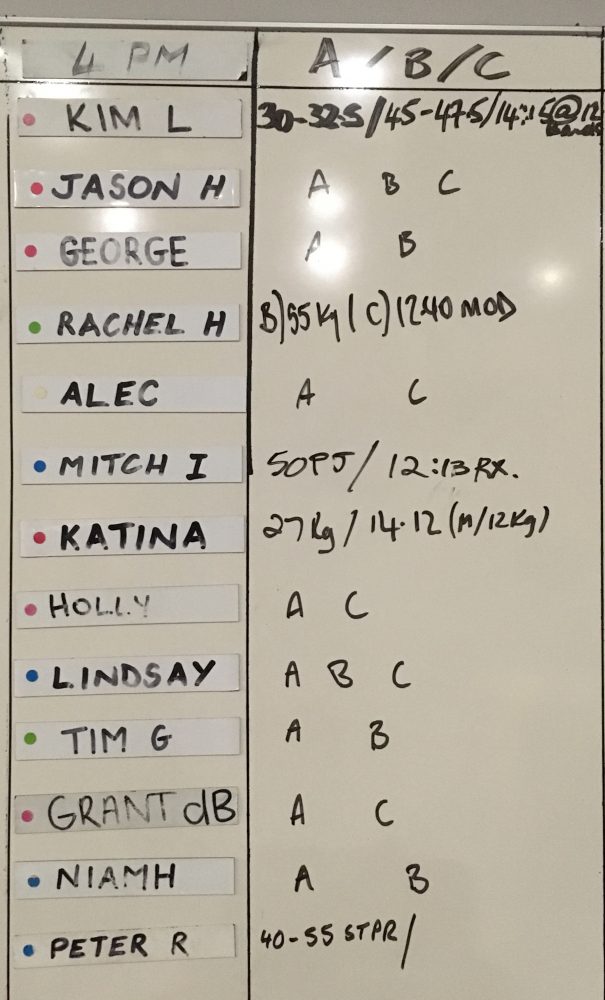 4 PM A / B / C
KIM L 30-32.5/45-47.5/14:15@12
JASON H A B C
GEORGE A B
RACHEL H B)55Kg/C)1240 MOD
ALEC A C
MITCH I 50PJ/12:13RX.
KATINA 27Kg/14.12(M/12Kg)
HOLLY A C
LINDSAY A B C
TIM G A B
GRANT dB A C
NIAMH A B
PETER R 40-55 STPR/